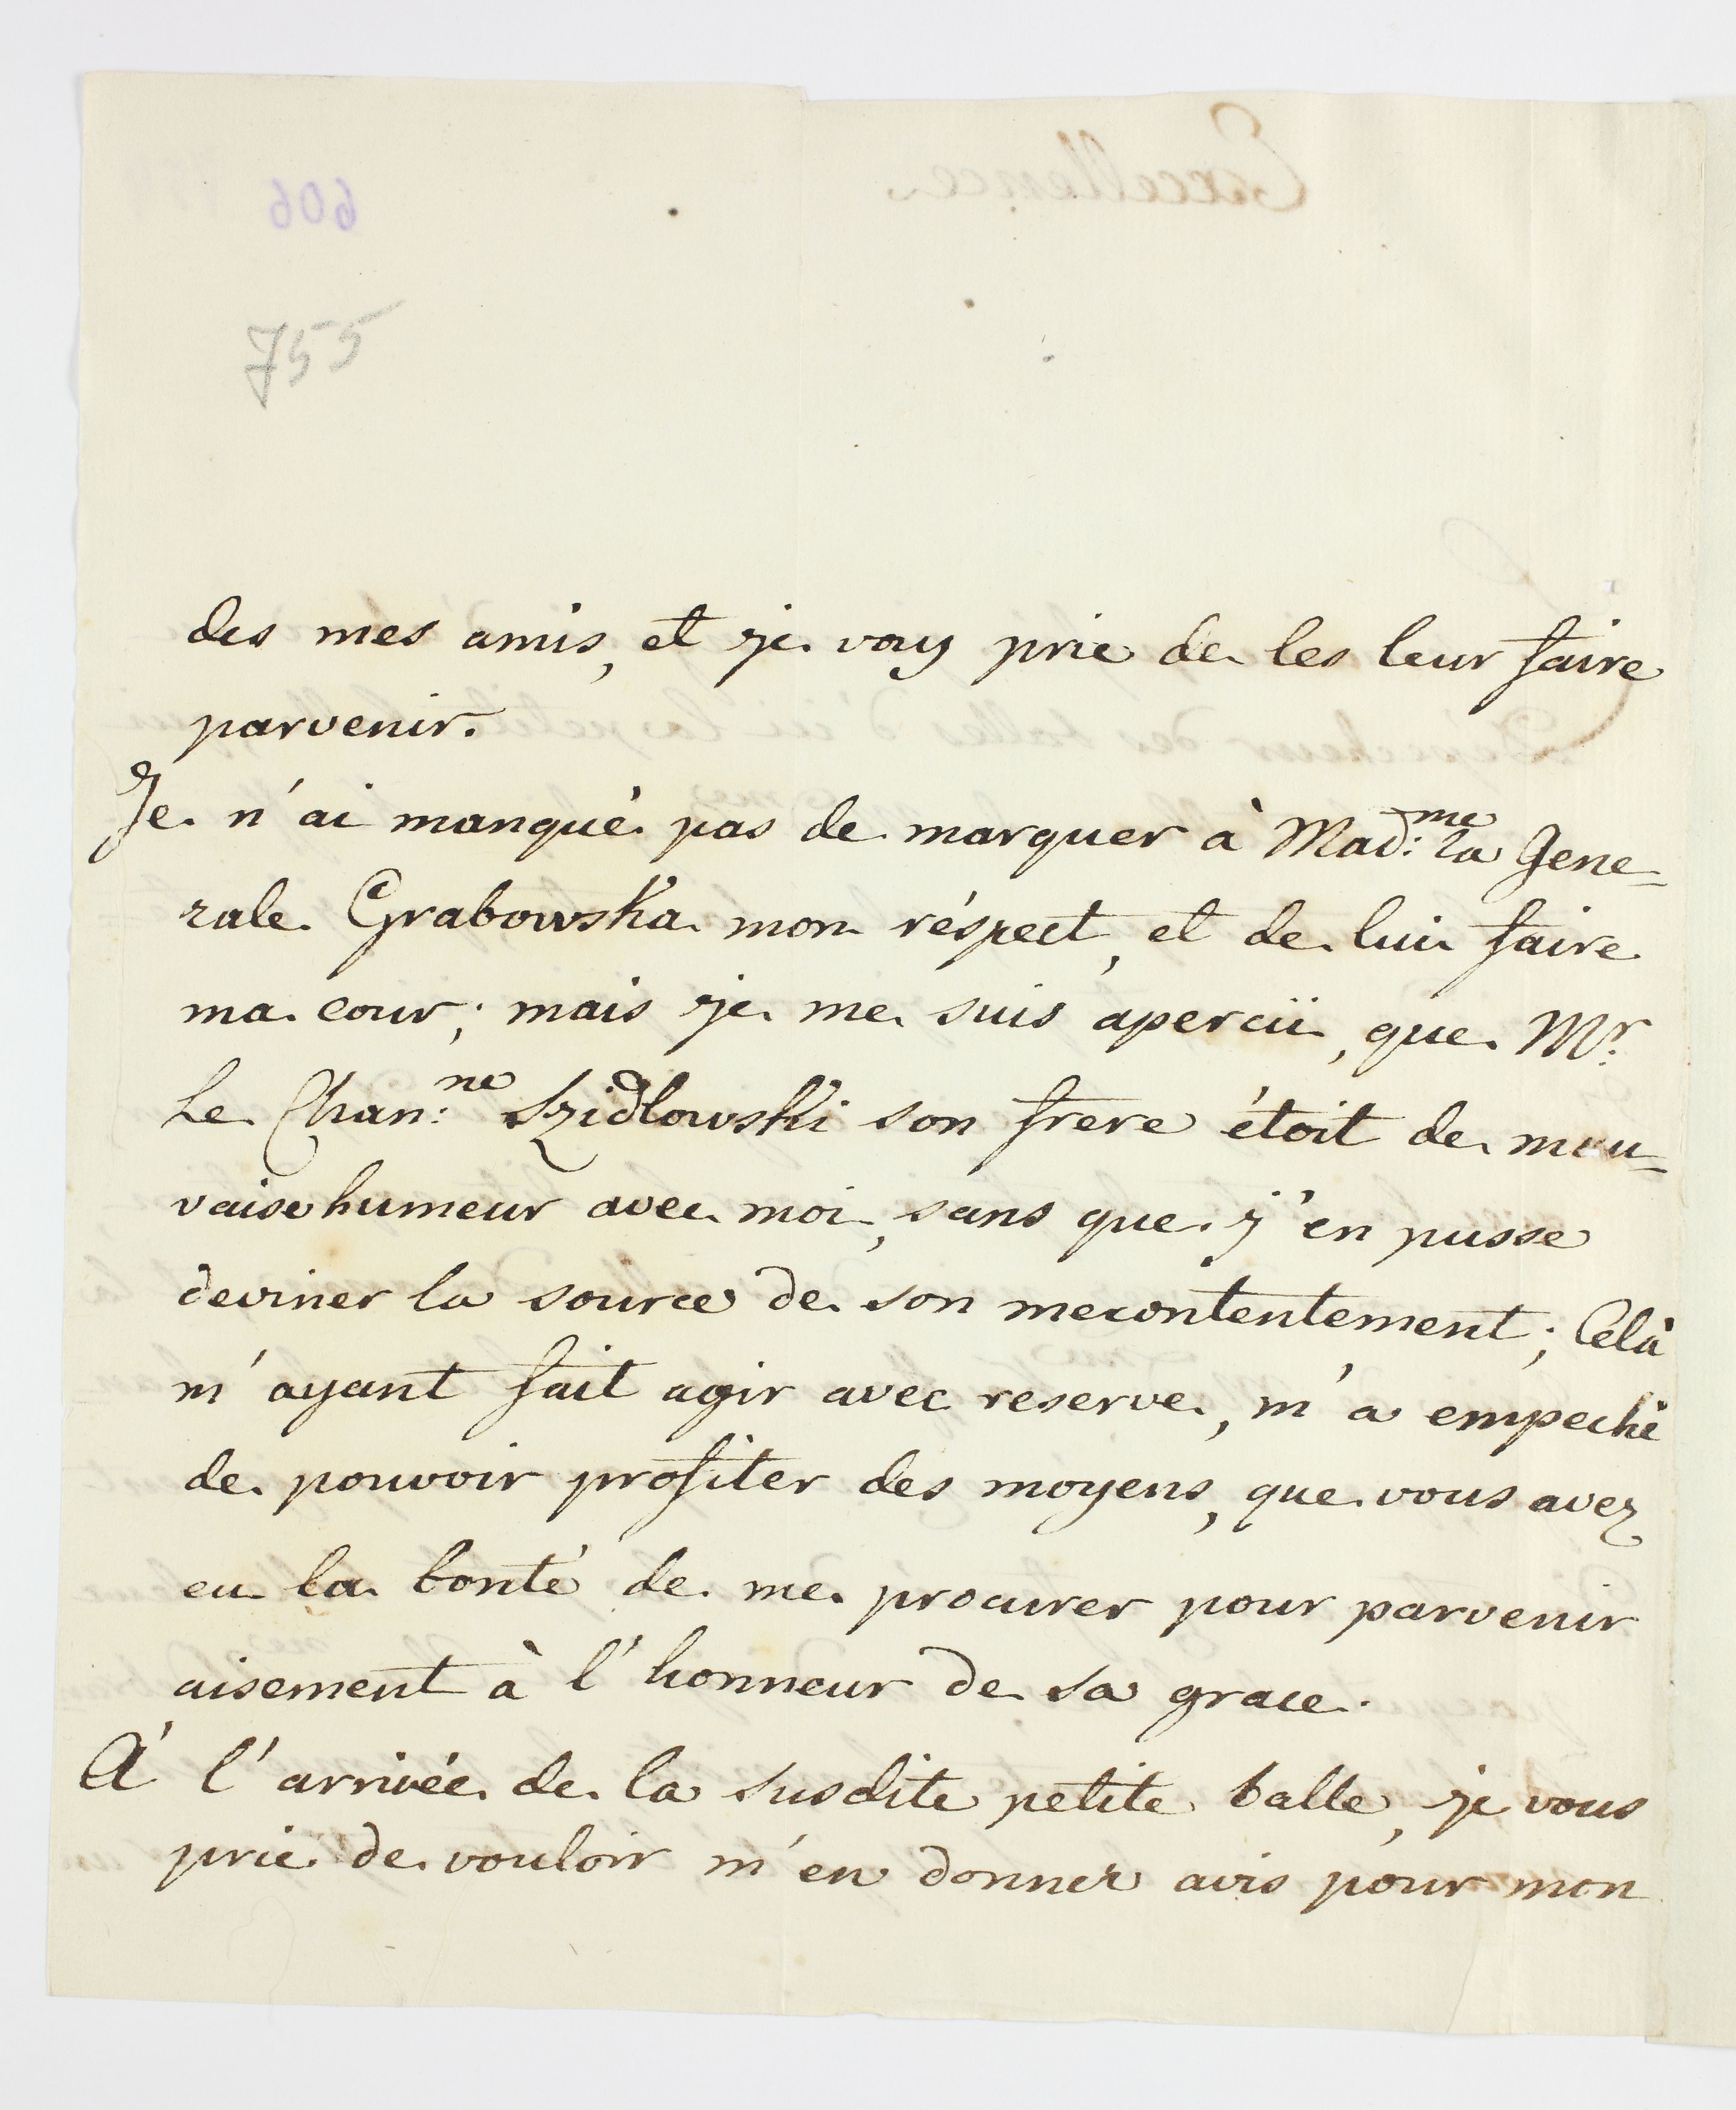 755
des mes amis, et je vous prie de les leur faire
parvenir.
Je n'ai manqué pas de marquer à Mad:me la Gene-
rale Grabowska mon réspect, et de lui faire
ma cour; mais je me suis apercüi, que Mr.
Le Chan:ne Szidlowski son frere étoit de mau-
vaise humeur avec moi, sans que j'en pusse
deviner la source de son mecontentement; Celà
m'ayant fait agir avec reserve, m'a empeché
de pouvoir profiter des moyens, que vous avez
eu la bonté de me procurer pour parvenir
aisement à l'honneur de sa grace.
À l'arrivée de la susdite petite balle, je vous
prie de vouloir m'en donner avis pour mon